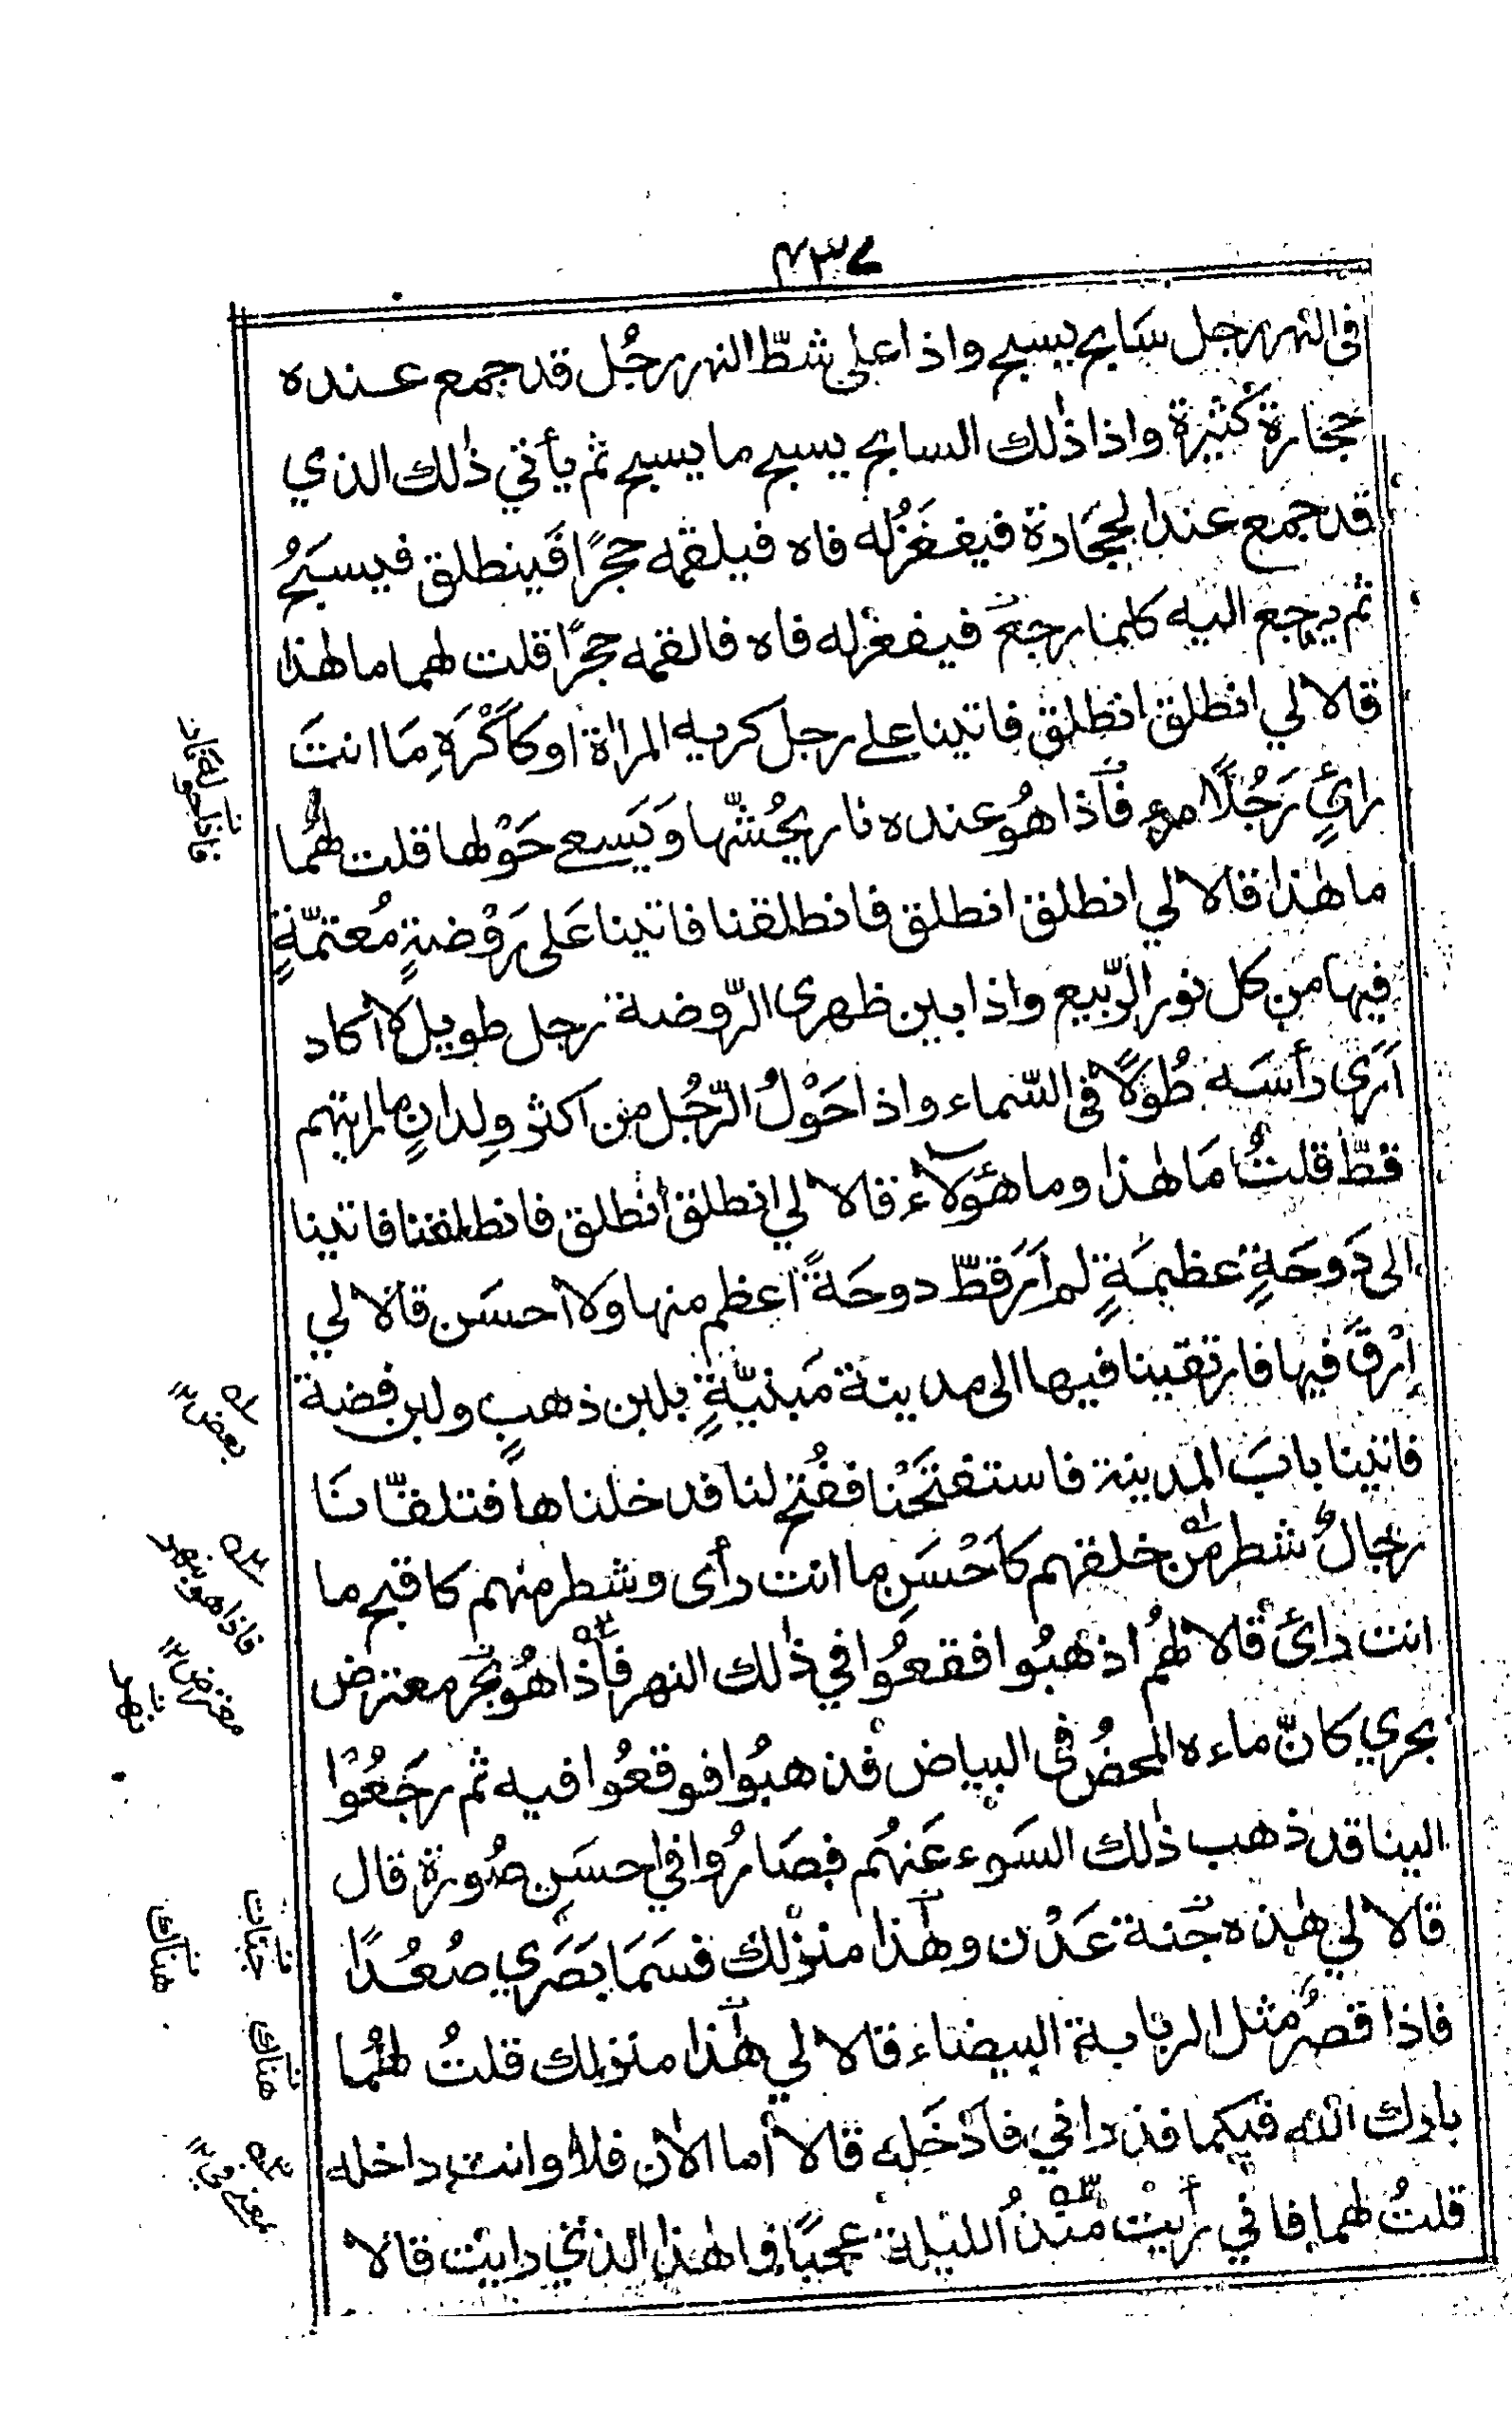 ٤٣٧
فى النهر رجل سَابح يسبح واذا على شطّ النهر رجُل قد جمع عنده
حجارة كثيرة واذا ذٰلك السابح يسبح ما يسبح ثم يأتي ذٰلك الذي
قد جمع عند الحِجَارة فيفغَرُ له فاه فيلقمه حجرًا فَينطلق فيسبَحُ
ثم يرجع اليه كلما رجع فيفغر له فاه فالقمه حجرًا قلت لهما ما هٰذا
قالا لي انطلق انطلق فاتينا على رجل كريه المراٰة او كَاَكْرَهِ مَا انتَ
رائٍ رَجُلًا مرء فَاِذا هُو عنده نار يحُشّها وَيَسعى حَوْلها قلت لهُما
ما هٰذا قالا لي انطلق انطلق فانطلقنا فاتينا عَلى رَوْضةٍ مُعتمّةٍ
فيها من كل نور الرّبيع واذا بين ظهرى الرّوضة رجل طويل لا اكاد
اَرَى رأسَه طُوَلًا فى السّماء واذا حَوْلُ الرّجُل من اكثر وِلدانٍ ما رايتهم
قطّ قلتُ مَا هٰذا وما هٰؤلاء قالا لي انطلق انطلق فانطلقنا فاتينا
الى دَوحَةٍ عظيمَةٍ لم اَرَ قطّ دوحَةً اعظم منها ولا احسَن قالا لي
اِرْقَ فيها فارتقينا فيها الى مدينة مَبنيّةٍ بلبن ذهبٍ ولبن فضة
فاتينا بابَ المدينة فاستفتَحْنا ففُتح لنا فدخلناها فتلقّانَا
رجالٌ شطر من خلقهم كاَحْسَنِ ما انت رأى وشطر منهم كاقبح ما
انت رائ قالا لهُم اذهبُوا فقعُوا في ذٰلك النهر فَاِذا هُو بحْر معترض
يجري كانّ ماءه المحضُ فى البياض فذهبُوا فوقعُوا فيه ثم رجَعُوْا
الينا قد ذهب ذٰلك السَوء عَنهُم فصَارُوا في احسَن صُورة قال
قالا لي هٰذه جنة عَدْن وهٰذا منزلك فسَمَا بَصَرِي صُعُدًا
فاذا قصرٌ مثل الربابة البيضاء قالا لي هٰذا منزلك قلتُ لهُما
بارك الله فيكما فذراني فاَدْخلَه قالا أما الاٰن فلا وانت داخله
قلتُ لهما فاني رأيت منذُ الليلة عجبًا فما هٰذا الذي رايت قالا
بعض ١٢
فاذا هو بنهر
معترض ١٢
نهر
جنات
هناك
هناك